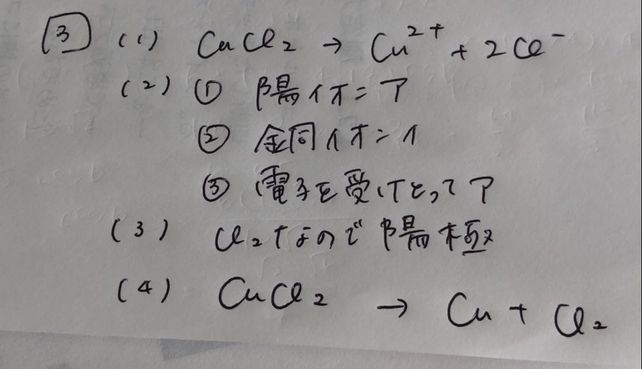 3 (1) CuCl₂ → Cu²⁺ + 2Cl⁻
(2) ① 陽イオニア
② 金同イオニイ
③ 電子を受けとってア
(3) Cl₂なので陽極
(4) CuCl₂ → Cu + Cl₂